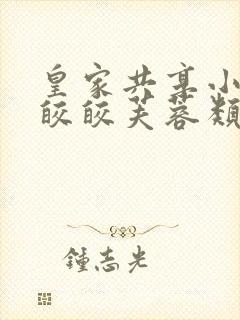 皇家共享小
皎皎芙蓉類
鍾志光